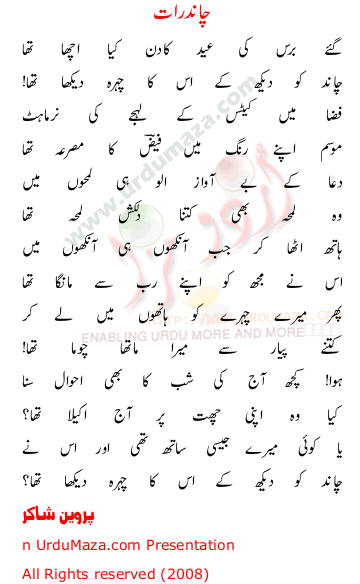 چاند رات
گئے برس کی عید کا دن کیا اچھا تھا
چاند کو دیکھ کے اس کا چہرہ دیکھا تھا!
فضا میں کیٹس کے لہجے کی نرماہٹ
موسم اپنے رنگ میں فیضؔ کا مصرعہ تھا
دعا کے بے آواز الو ہی لمحوں میں
وہ لمحہ بھی کتنا دلکش لمحہ تھا
ہاتھ اٹھا کر جب آنکھوں ہی آنکھوں میں
اس نے مجھ کو اپنے رب سے مانگا تھا
پھر میرے چہرے کو ہاتھوں میں لے کر
کتنے پیار سے میرا ماتھا چوما تھا!
ہوا! کچھ آج کی شب کا بھی احوال سنا
کیا وہ اپنی چھت پر آج اکیلا تھا؟
یا کوئی میرے جیسی ساتھ تھی اور اس نے
چاند کو دیکھ کے اس کا چہرہ دیکھا تھا؟
پروین شاکر
n UrduMaza.com Presentation
All Rights reserved (2008)
www.urdumaza.com
اردو مزا
UrduMaza.com
ENABLING URDU MORE AND MORE